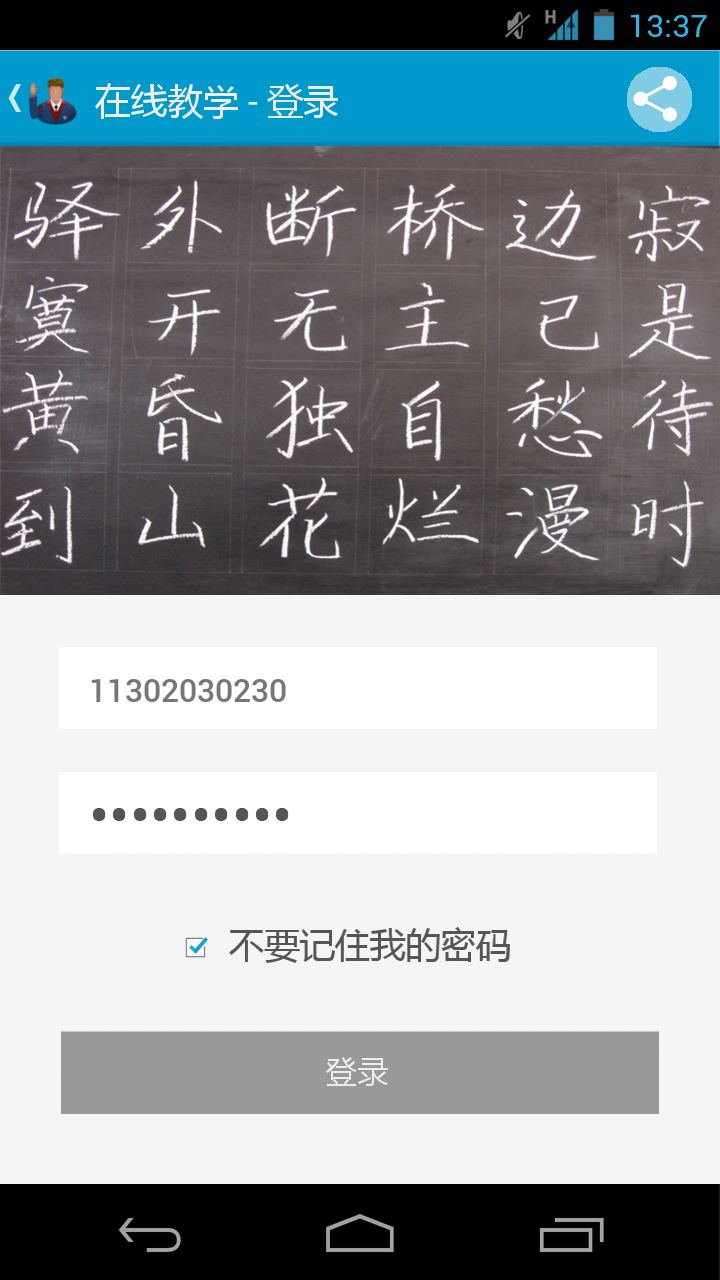 H 13:37
在线教学 - 登录
驿外断桥边寂
寞开无主已是
黄昏独自愁待
到山花烂漫时
11302030230
••••••••••
不要记住我的密码
登录